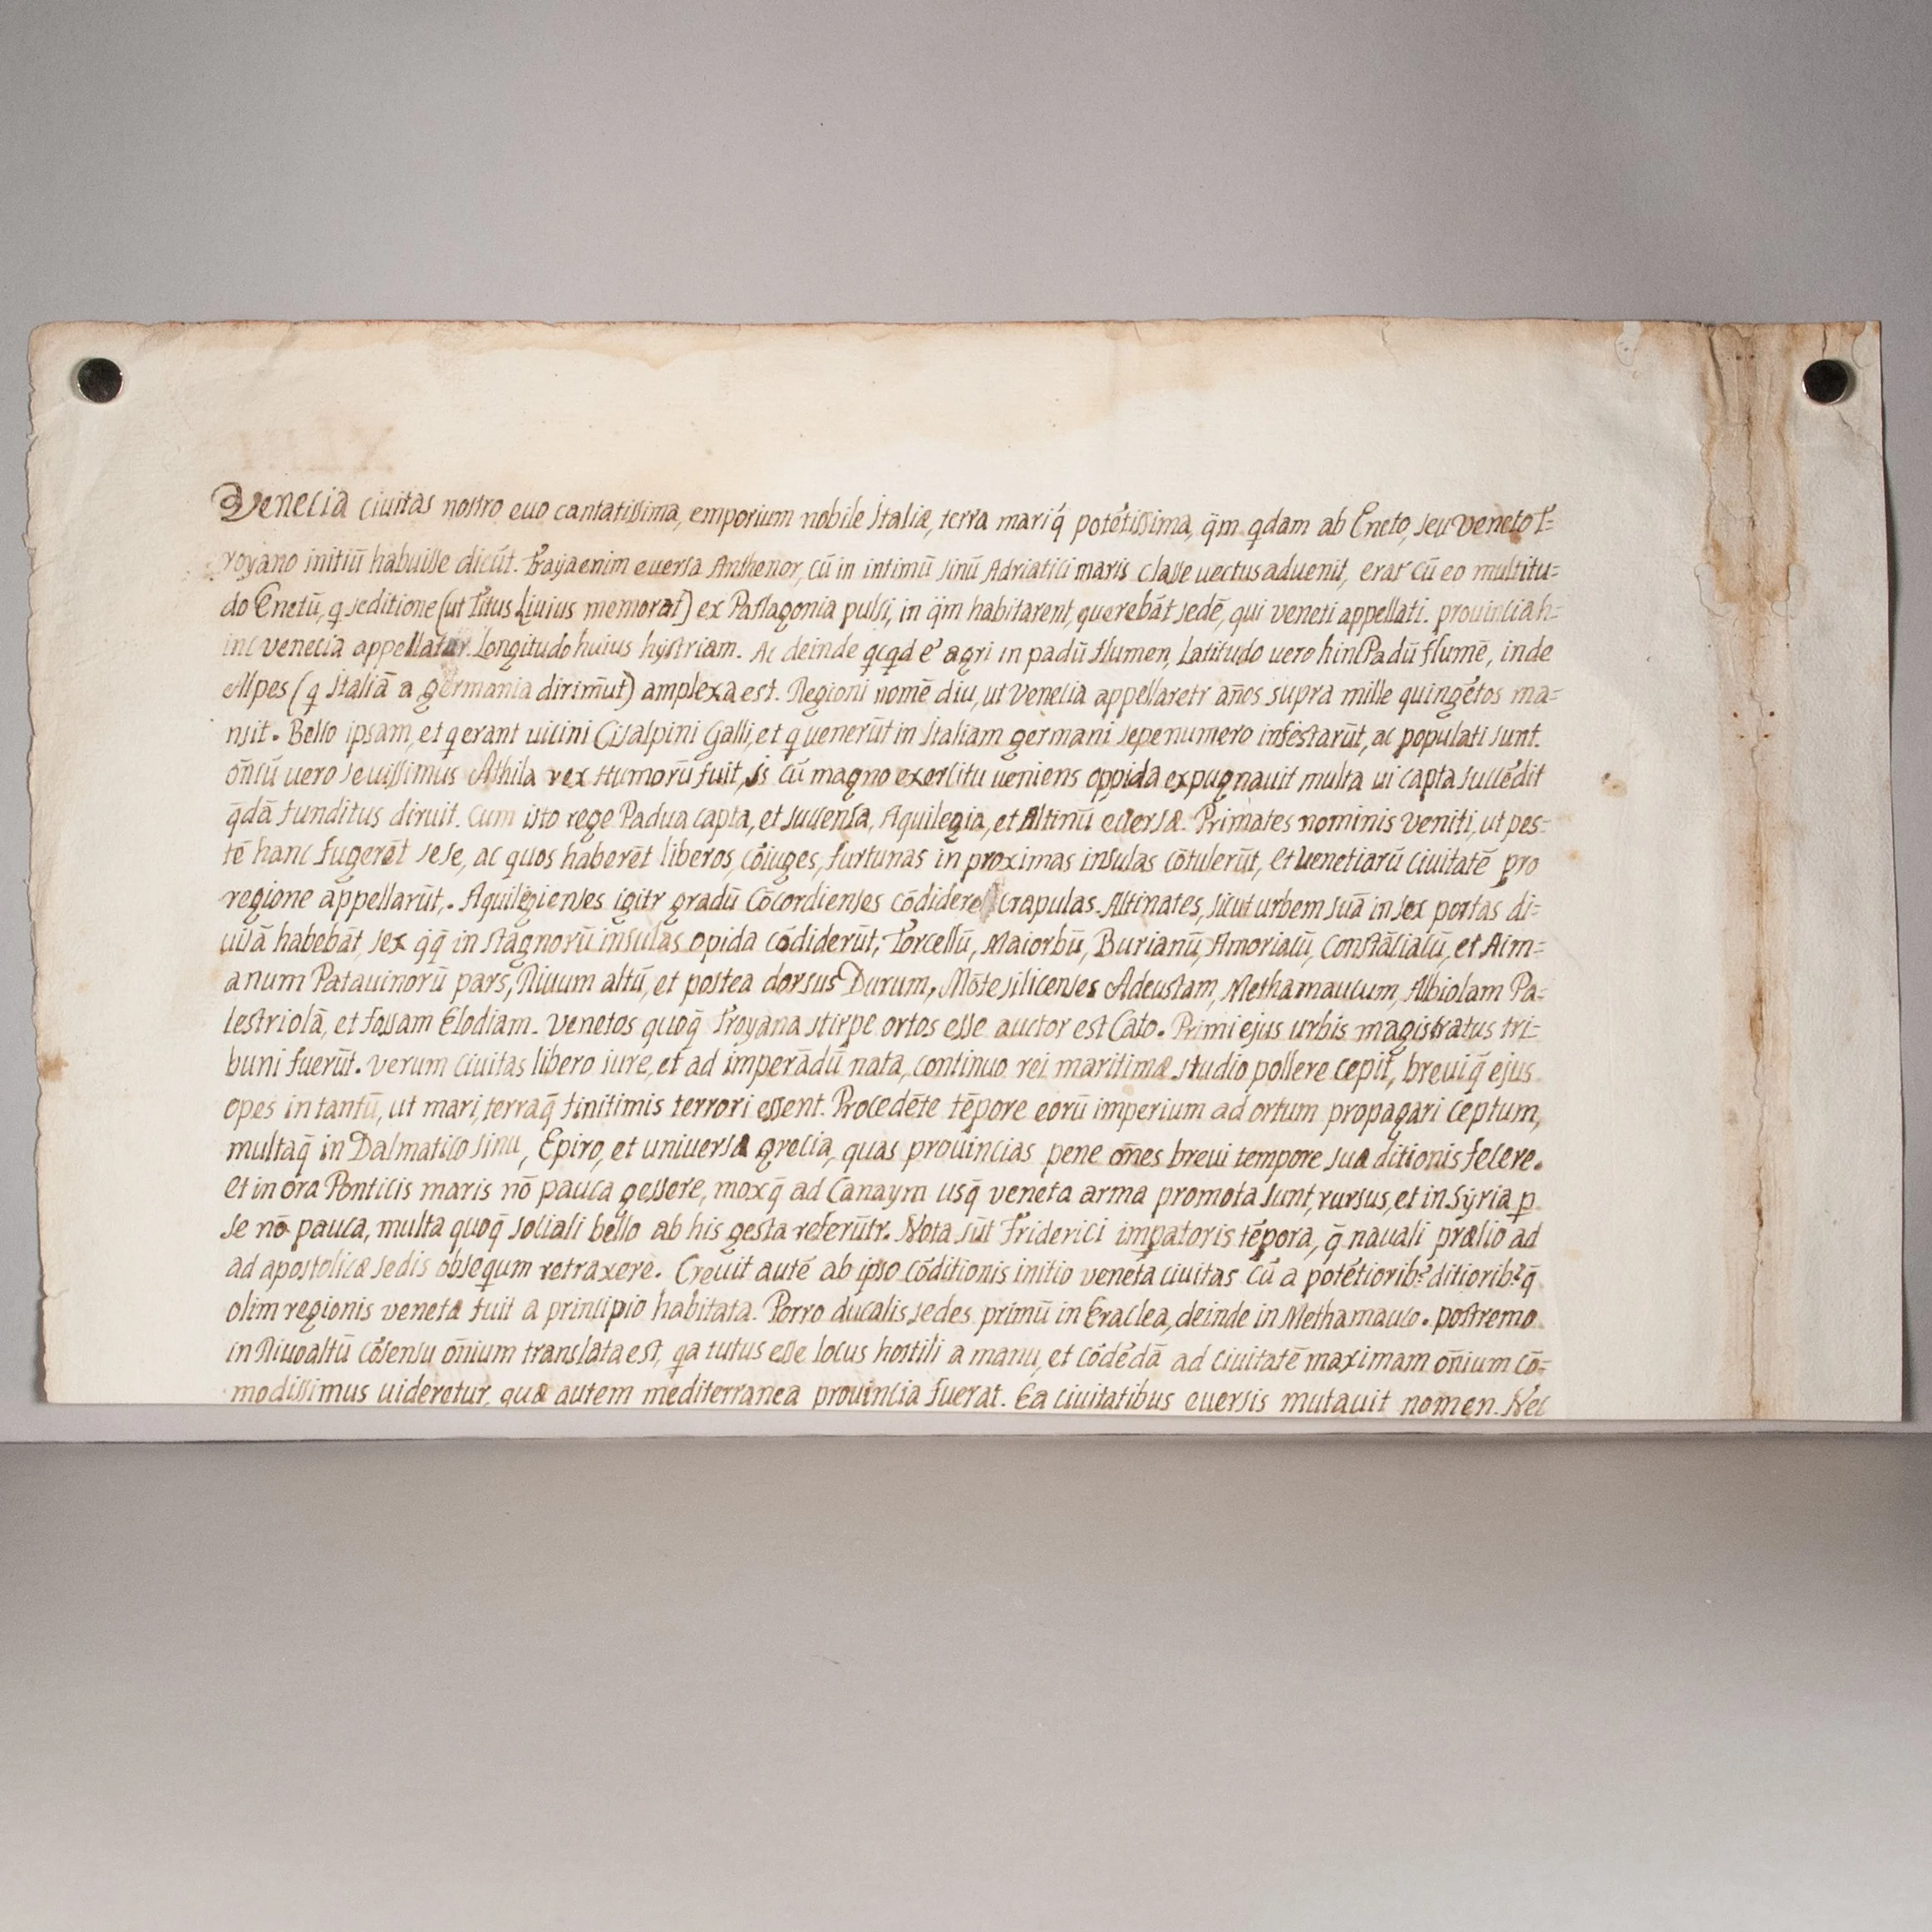 Venecia ciuitas nostro euo cantatissima, emporium nobile Italiæ, terra mariq́ potétissima, q̄m qdam ab Eneto, seu veneto T=
royano initiū habuisse dicūt. Troya enim euersa Anthenor, cū in intimū sinū Adriatici maris classe uectus aduenit, erat cū eo multitu=
do Enetū, q seditione (ut Titus Liuius memorat) ex Paflagonia pulsi, in q̄m habitarent, querebāt sedē, qui veneti appellati. prouincia h=
inc venecia appellatur. Longitudo huius hystriam. Ac deinde qcqd é agri in padū flumen, Latitudo uero hinc Padū flumē, inde
Alpes (q Italiā a germania dirim̄ut) amplexa est. Regioni nomē diu, ut venecia appellaretr an̄os supra mille quingētos ma=
nsit. Bello ipsam, et q erant uicini Cisalpini Galli, et q uenerūt in Italiam germani sepenumero infestarūt, ac populati sunt.
om̄iū uero seuissimus Athila rex Humorū fuit, is cū magno exercitu ueniens oppida expugnauit multa ui capta succēdit
q̄dā funditus diruit. Cum isto rege Padua capta, et succensa, Aquilegia, et Altinū euersæ. Primates nominis veniti, ut pes=
tē hanc fugerēt sese, ac quos haberēt liberos, cōiuges, furtunas in proximas insulas cōtulerūt, et uenetiarū ciuitatē pro
regione appellarūt,. Aquilegienses igitr gradū Cōcordienses cōdidere crapulas. Altinates, sicut urbem suā in sex portas di=
uisā habebāt, sex q̇q̄ in stagnorū insulas opida cōdiderūt, Torcellū, Maiorbū, Burianū, Amoriacū, Constāciacū, et Aim=
anum Patauinorū pars, Riuum altū, et postea dorsus Durum, Mōte silicenses Adeustam, Methamaucum, Albiolam Pa=
lestriolā, et fossam Clodiam. Venetos quoq̄ Troyana stirpe ortos esse auctor est Cato. Primi ejus urbis magistratus tri=
buni fuerūt. Verum ciuitas libero iure, et ad imperādū nata, continuo rei maritimæ studio pollere cepit, breuiq̄ ejus
opes in tantū, ut mari, terraq̄ finitimis terrori essent. Procedēte tēpore eorū imperium ad ortum propagari ceptum,
multaq̄ in Dalmatico sinu, Epiro, et uniuersa grecia, quas prouincias pene om̄es breui tempore suæ ditionis fecere.
et in ora Ponticis maris nō pauca gessere, moxq̄ ad Canaym usq̄ veneta arma promota sunt, rursus, et in Syria p
se nō pauca, multa quoq̄ sociali bello ab his gesta referūtr. Nota sūt Friderici impatoris tēpora, q̄ nauali prælio ad
ad apostolicæ sedis obsequm retraxere. Creuit autē ab ipso cōditionis initio veneta ciuitas cū a potētiorib? ditiorib? q̄
olim regionis venetæ fuit a principio habitata. Porro ducalis sedes primū in Eraclea, deinde in Methamauco. postremo
in Riuoaltū cōsensu om̄ium translata est, qa tutus esse locus hostili a manu, et cōdēdā ad ciuitatē maximam om̄ium cō=
modissimus uideretur, quæ autem mediterranea prouincia fuerat. Ea ciuitatibus euersis mutauit nomen. Nec